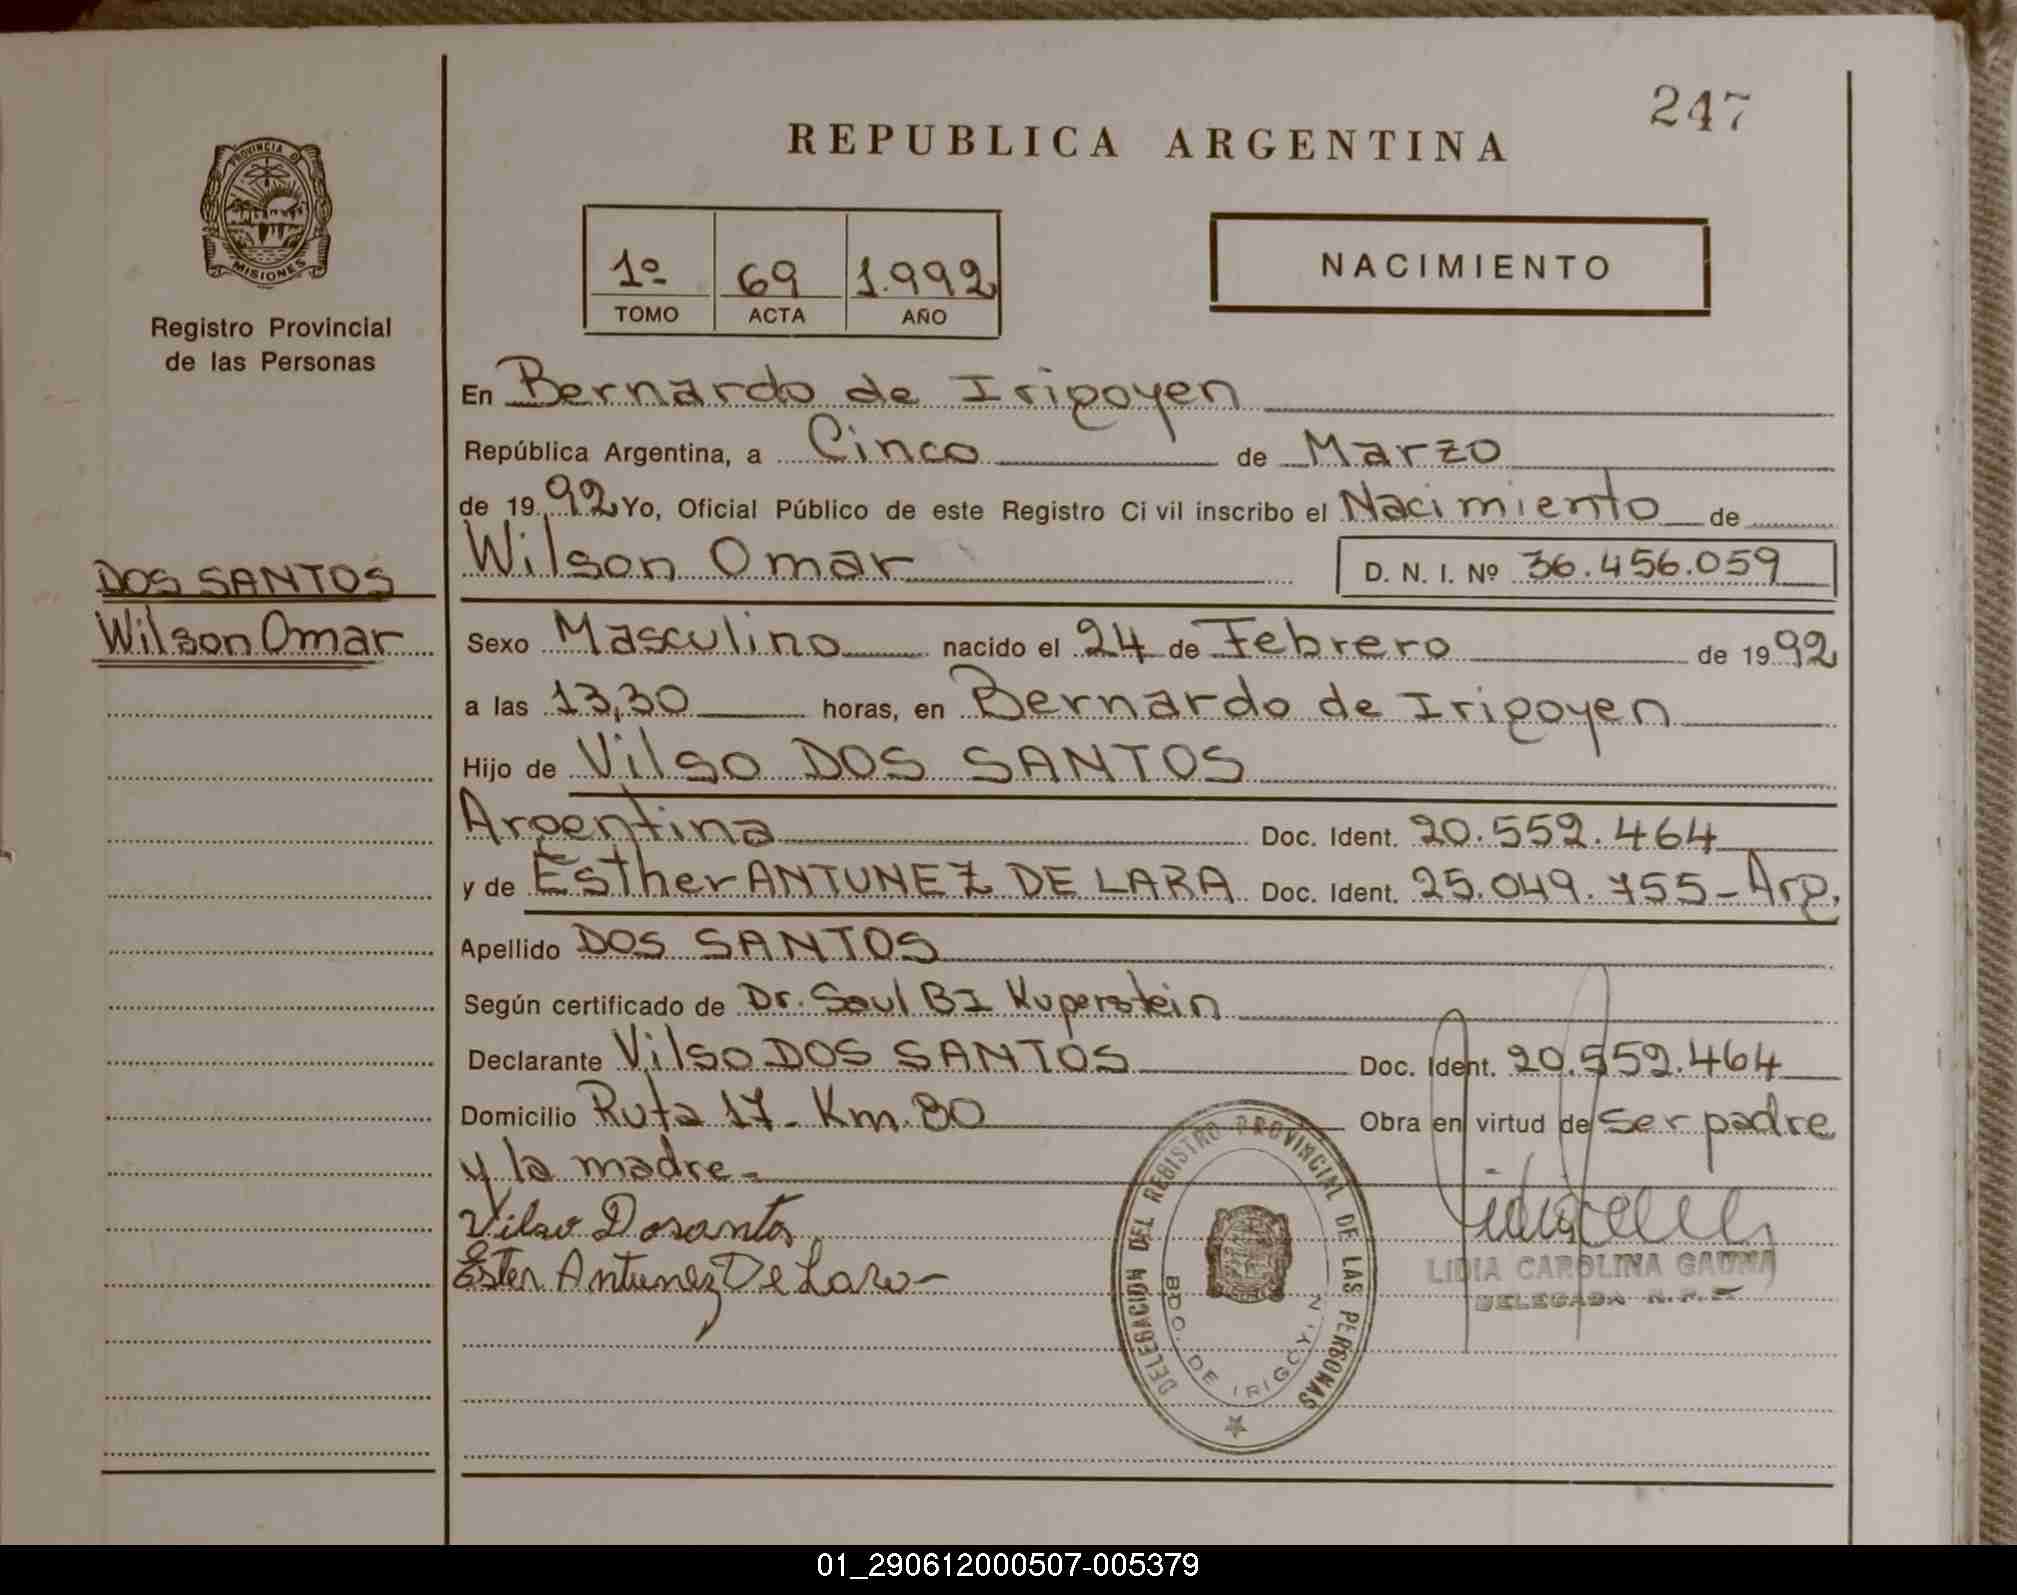 247
REPUBLICA ARGENTINA
PROVINCIA D
MISIONES
Registro Provincial
de las Personas
1º 69 1.992
TOMO ACTA AÑO
NACIMIENTO
En Bernardo de Irigoyen
República Argentina, a Cinco de Marzo
de 19 92 Yo, Oficial Público de este Registro Civil inscribo el Nacimiento de
DOS SANTOS
Wilson Omar
Wilson Omar D. N. I. Nº 36.456.059
Sexo Masculino nacido el 24 de Febrero de 19 92
a las 13,30 horas, en Bernardo de Irigoyen
Hijo de Vilso DOS SANTOS
Argentina Doc. Ident. 20.552.464
y de Esther ANTUNEZ DE LARA Doc. Ident. 25.049.755 - Arg.
Apellido DOS SANTOS
Según certificado de Dr. Saul BI Kuperstein
Declarante Vilso DOS SANTOS Doc. Ident. 20.552.464
Domicilio Ruta 17 - Km. 80 Obra en virtud de ser padre
y la madre -
Vilso Dosantos
Ester Antunez De Lara -
DELEGACION DEL REGISTRO PROVINCIAL DE LAS PERSONAS
BDO. DE IRIGOY.
LIDIA CAROLINA GAUNA
DELEGADA
01_290612000507-005379